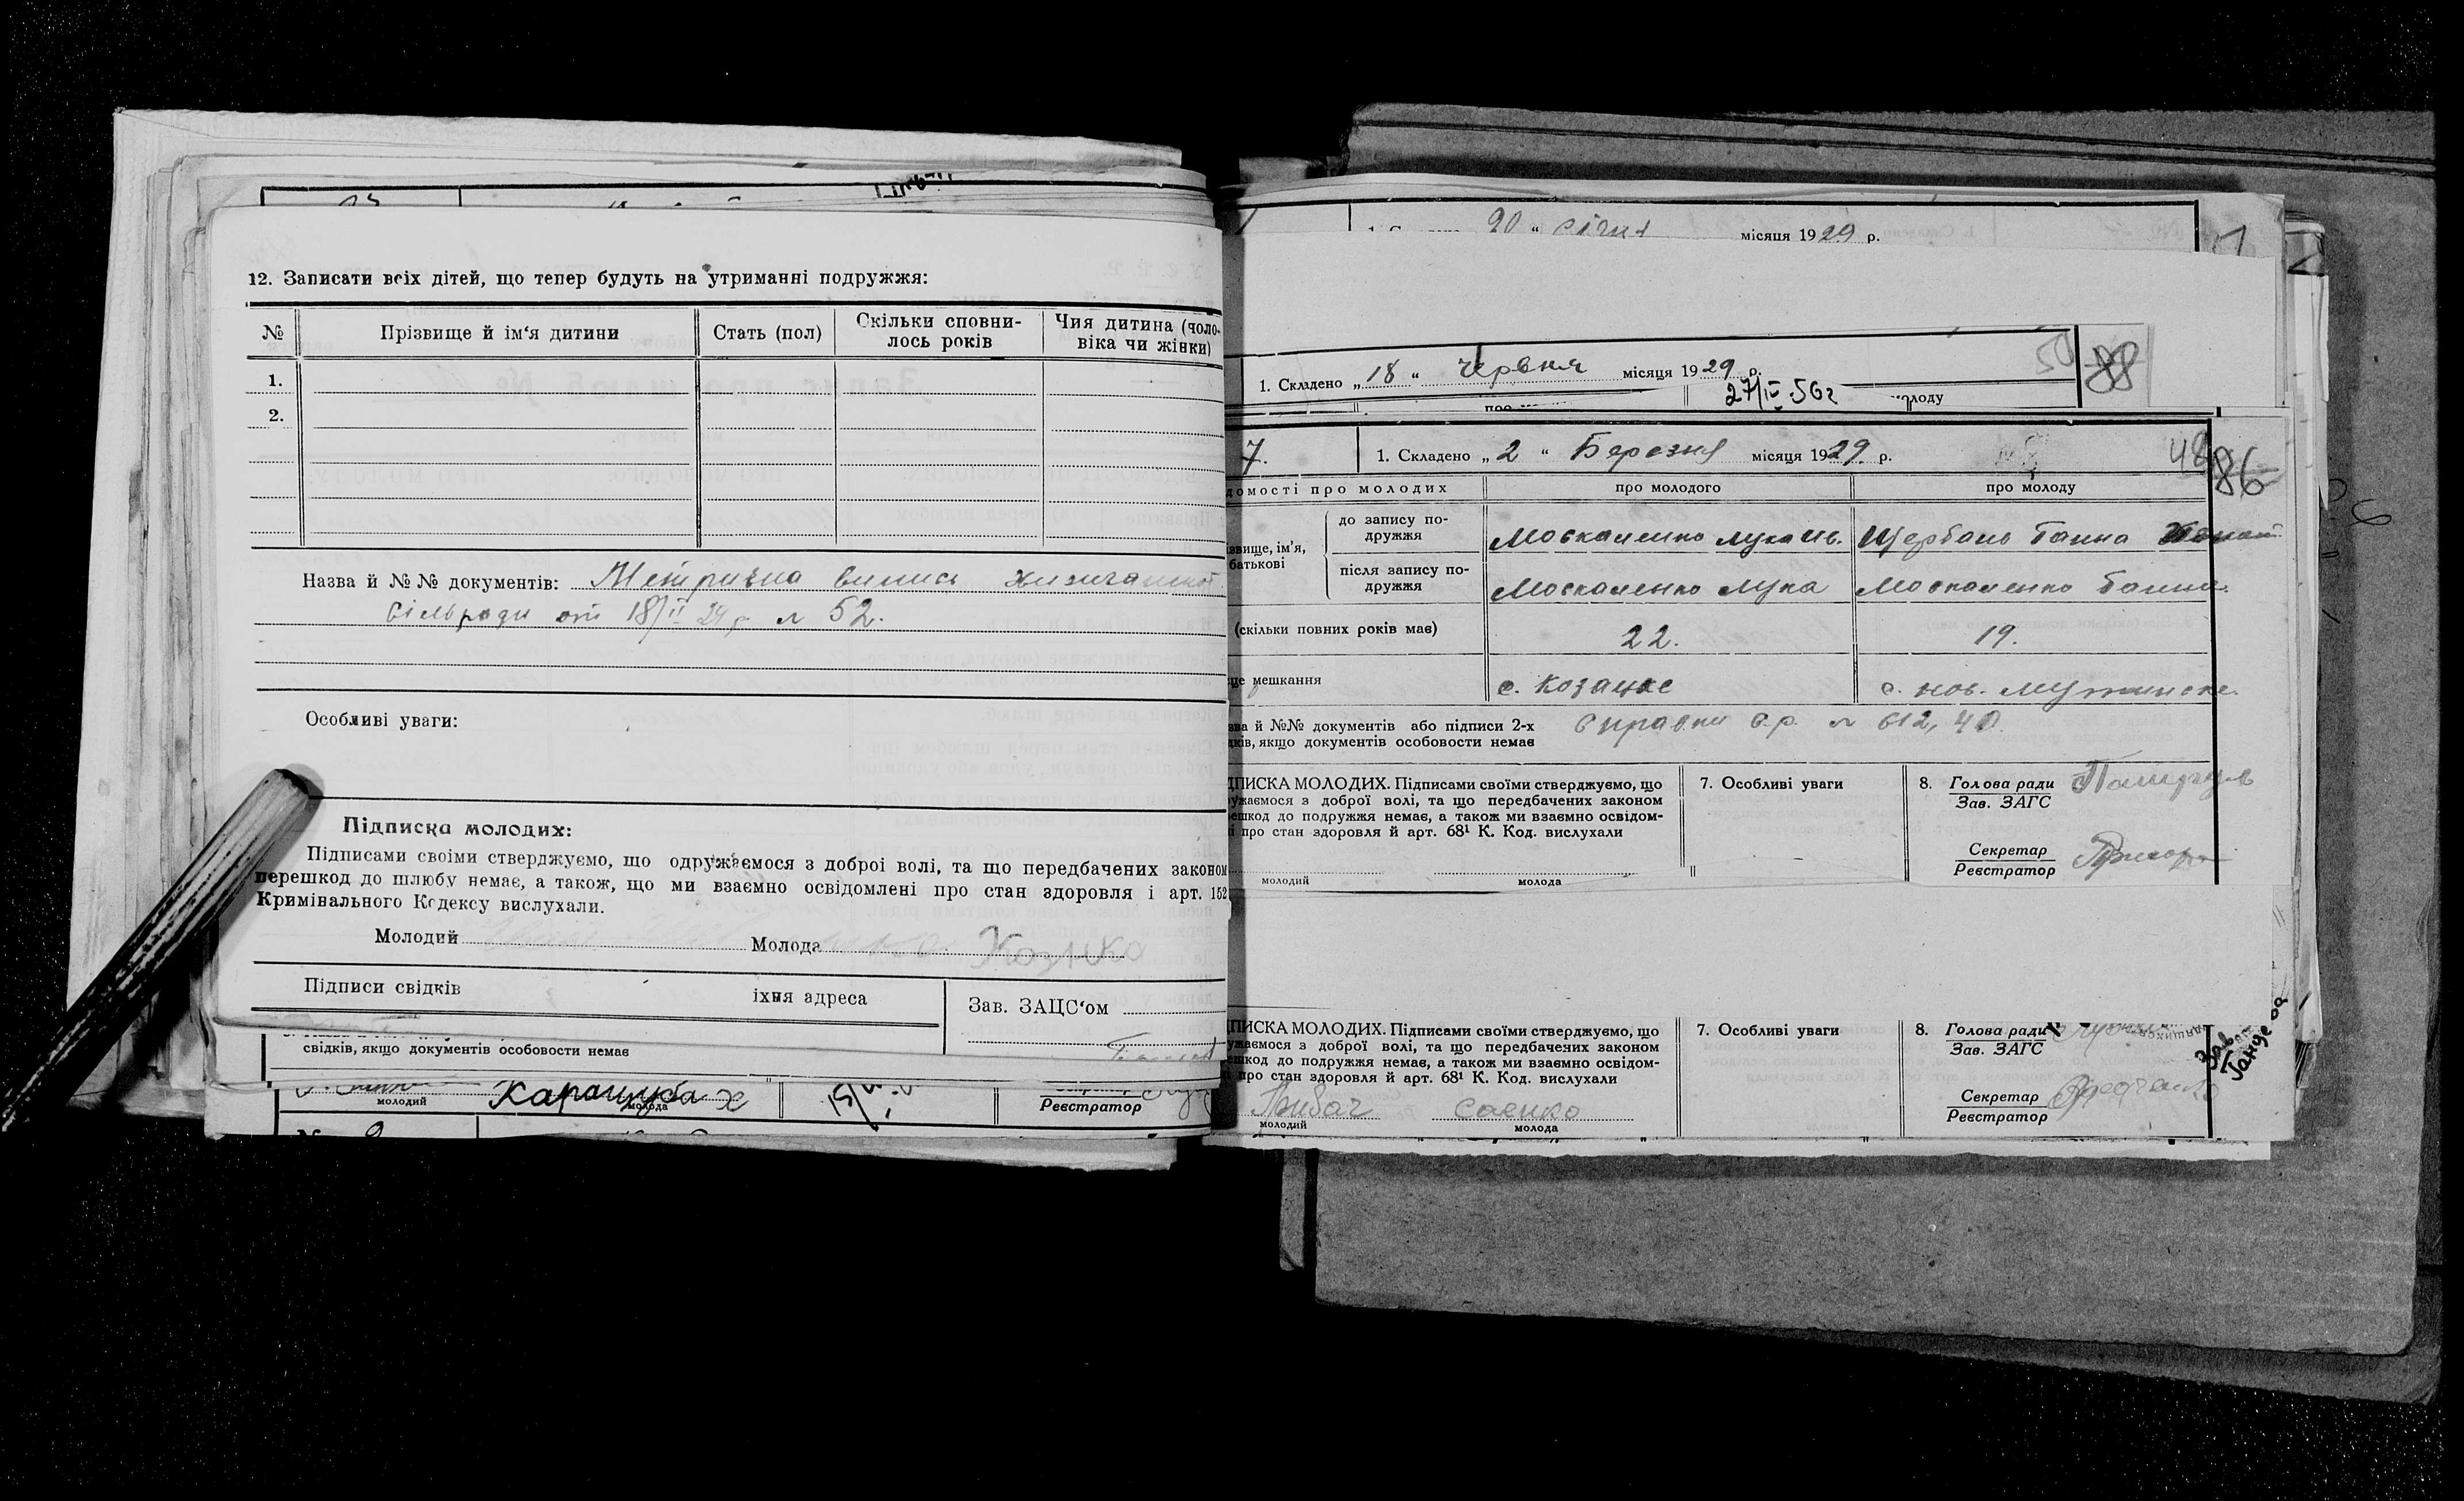 12. Записати всіх дітей, що тепер будуть на утриманні подружжя:
№ Прізвище й ім'я дитини Стать (пол) Скільки сповни- Чия дитина (чоло-
лось років віка чи жінки)
1.
2.
Назва й №№ документів: Метрична випись
сільради от 18/II 29 р. № 52.
Особливі уваги:
Підписка молодих:
Підписами своїми стверджуємо, що одружаємося з доброї волі, та що передбачених законом
перешкод до шлюбу немає, а також, що ми взаємно освідомлені про стан здоровля і арт. 152
Кримінального Кодексу вислухали.
Молодий Молода Козико
Підписи свідків їхня адреса Зав. ЗАЦС'ом
свідків, якщо документів особовости немає
молодий Карацуба х молода
Реєстратор
20 " січня місяця 1929 р.
1. Складено „18" червня місяця 1929 р. 50 88
27/IV-56 г молоду
7. 1. Складено „2" Березня місяця 1929. р. 48 86
домості про молодих про молодого про молоду
звище, ім'я, батькові до запису по-дружжя Москаленко Лука Щербань Ганна
після запису по-дружжя Москаленко Лука Москаленко Ганна
(скільки повних років має) 22. 19.
це мешкання с. Козацке с. нов. Мутинске.
зва й №№ документів або підписи 2-х справки с.р. № 612, 40
дків, якщо документів особовости немає
ДПИСКА МОЛОДИХ. Підписами своїми стверджуємо, що
ужаємося з доброї волі, та що передбачених законом
ешкод до подружжя немає, а також ми взаємно освідом-
і про стан здоровля й арт. 68¹ К. Код. вислухали
молодий молода
7. Особливі уваги
8. Голова ради
Зав. ЗАГС
Секретар
Реєстратор
ДПИСКА МОЛОДИХ. Підписами своїми стверджуємо, що
ужаємося з доброї волі, та що передбачених законом
ешкод до подружжя немає, а також ми взаємно освідом-
і про стан здоровля й арт. 68¹ К. Код. вислухали
Пивач Саенко
молодий молода
7. Особливі уваги
8. Голова ради
Зав. ЗАГС
Секретар
Реєстратор
Зав